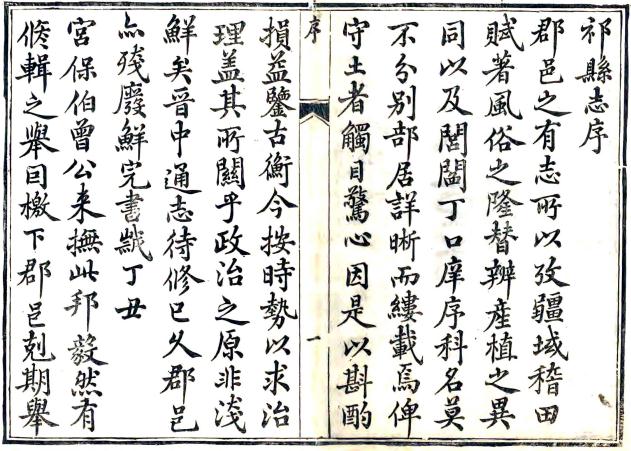 祁縣志序
郡邑之有志所以攷疆域稽田
賦著風俗之隆替辨產植之異
同以及閭閻丁口庠序科名莫
不分別部居詳晰而縷載焉俾
守土者觸目驚心因是以斟酌
序
一
損益鑒古衡今按時勢以求治
理盖其所關乎政治之原非淺
鮮矣晉中通志待修已久郡邑
亦殘廢鮮完書歲丁丑
宮保伯曾公来撫此邦毅然有
修輯之舉囙檄下郡邑剋期舉